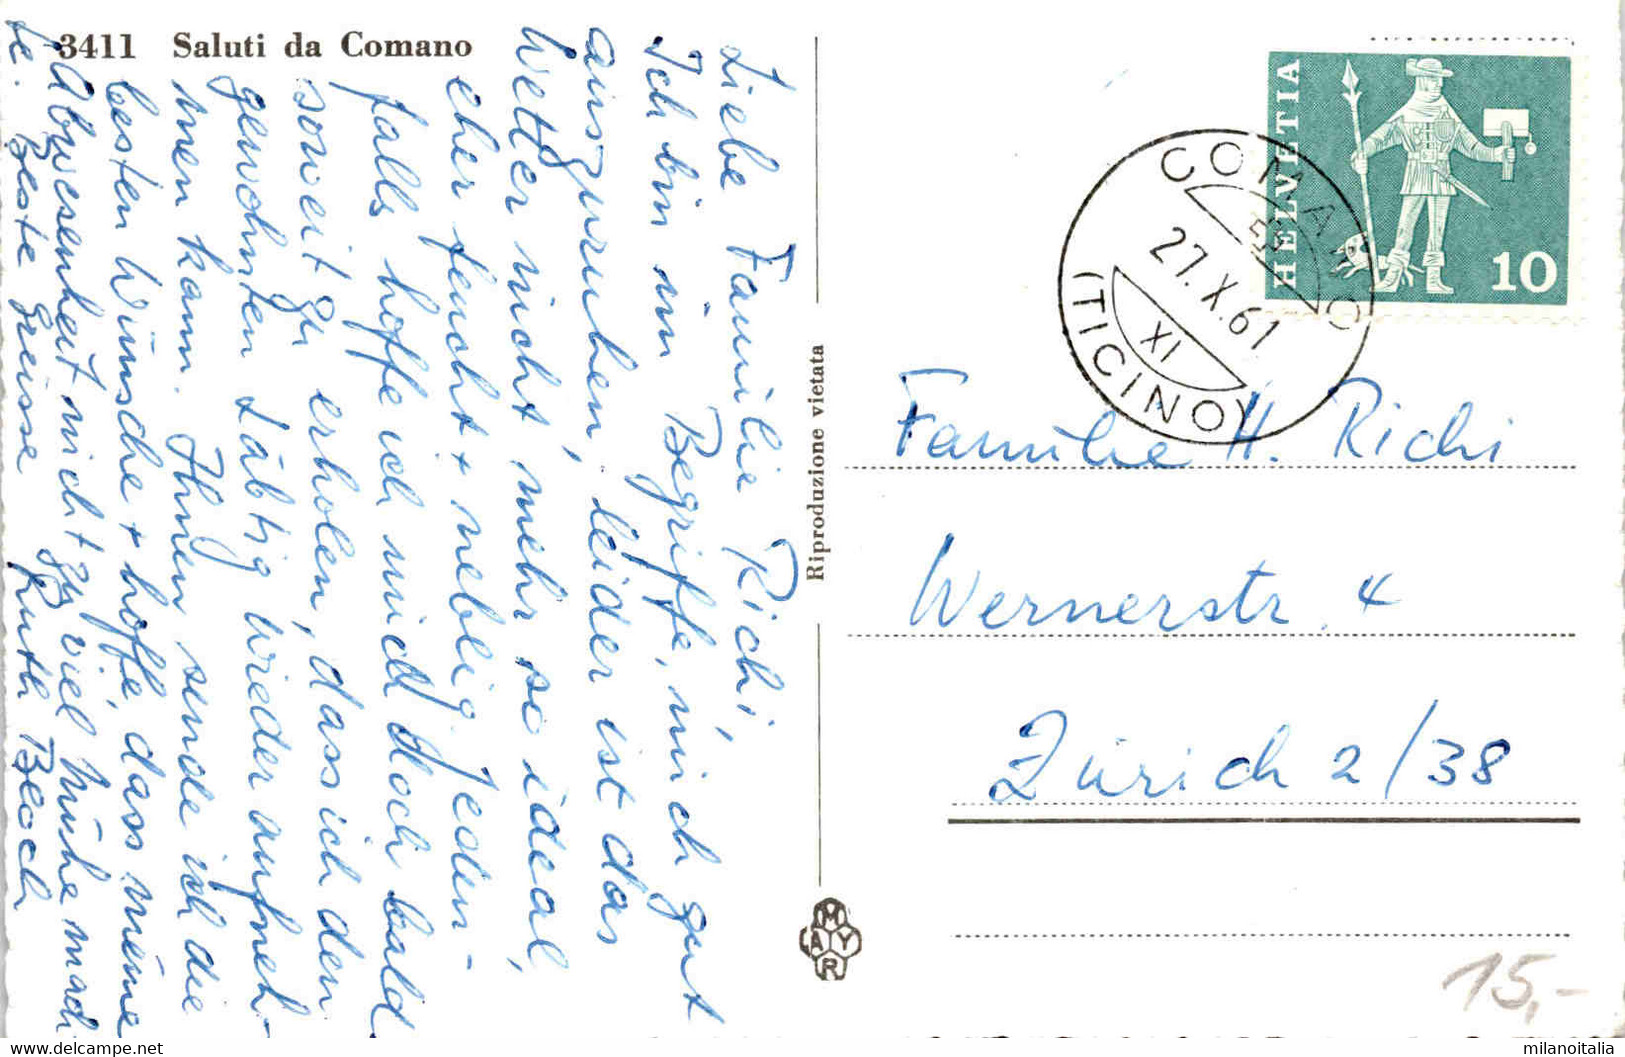 3411 Saluti da Comano
Liebe Familie Richi,
Ich bin im Begriffe, mich gut
auszuruhen, leider ist das
Wetter nicht mehr so ideal,
eher feucht + neblig. Jeden-
falls hoffe ich mich doch bald
soweit zu erholen, dass ich den
gewohnten Lauf wieder aufneh-
men kann. Ihnen sende ich die
besten Wünsche + hoffe, dass meine
Abwesenheit nicht zu viel Mühe mach
te. Beste Grüsse
Ruth
Riproduzione vietata
MAYR
HELVETIA
10
COMANO
27.X.61
XI
(TICINO)
Familie H. Richi
Wernerstr. 4
Zürich 2/38
15,-
www.milanoitalia